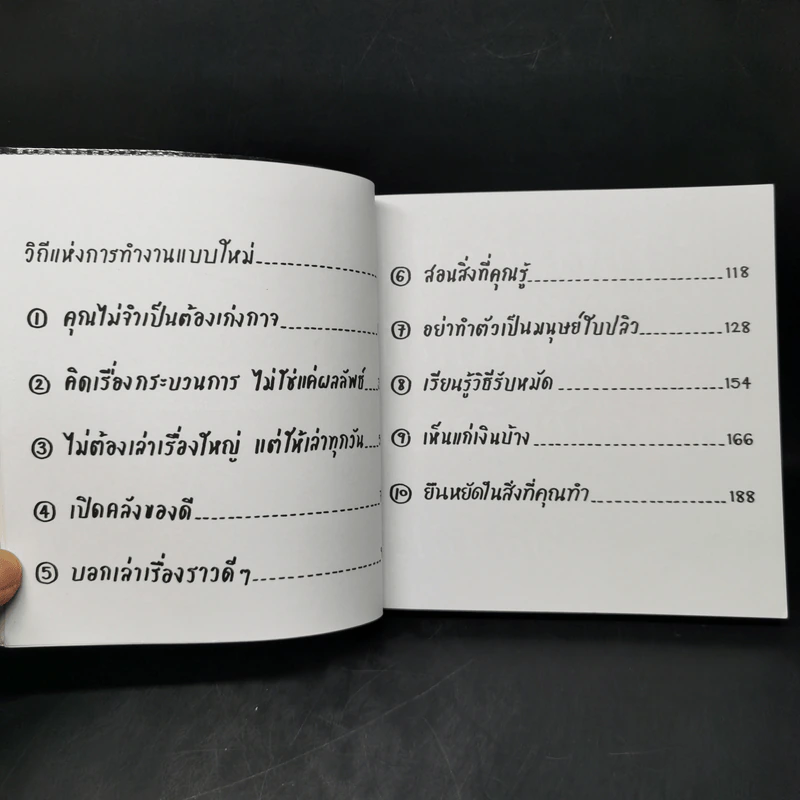 วิถีแห่งการทำงานแบบใหม่
① คุณไม่จำเป็นต้องเก่งกาจ
② คิดเรื่องกระบวนการ ไม่ใช่แค่ผลลัพธ์
③ ไม่ต้องเล่าเรื่องใหญ่ แต่ให้เล่าทุกวัน
④ เปิดคลังของดี
⑤ บอกเล่าเรื่องราวดีๆ
⑥ สอนสิ่งที่คุณรู้ 118
⑦ อย่าทำตัวเป็นมนุษย์ใบปลิว 128
⑧ เรียนรู้วิธีรับหมัด 154
⑨ เห็นแก่เงินบ้าง 166
⑩ ยืนหยัดในสิ่งที่คุณทำ 188